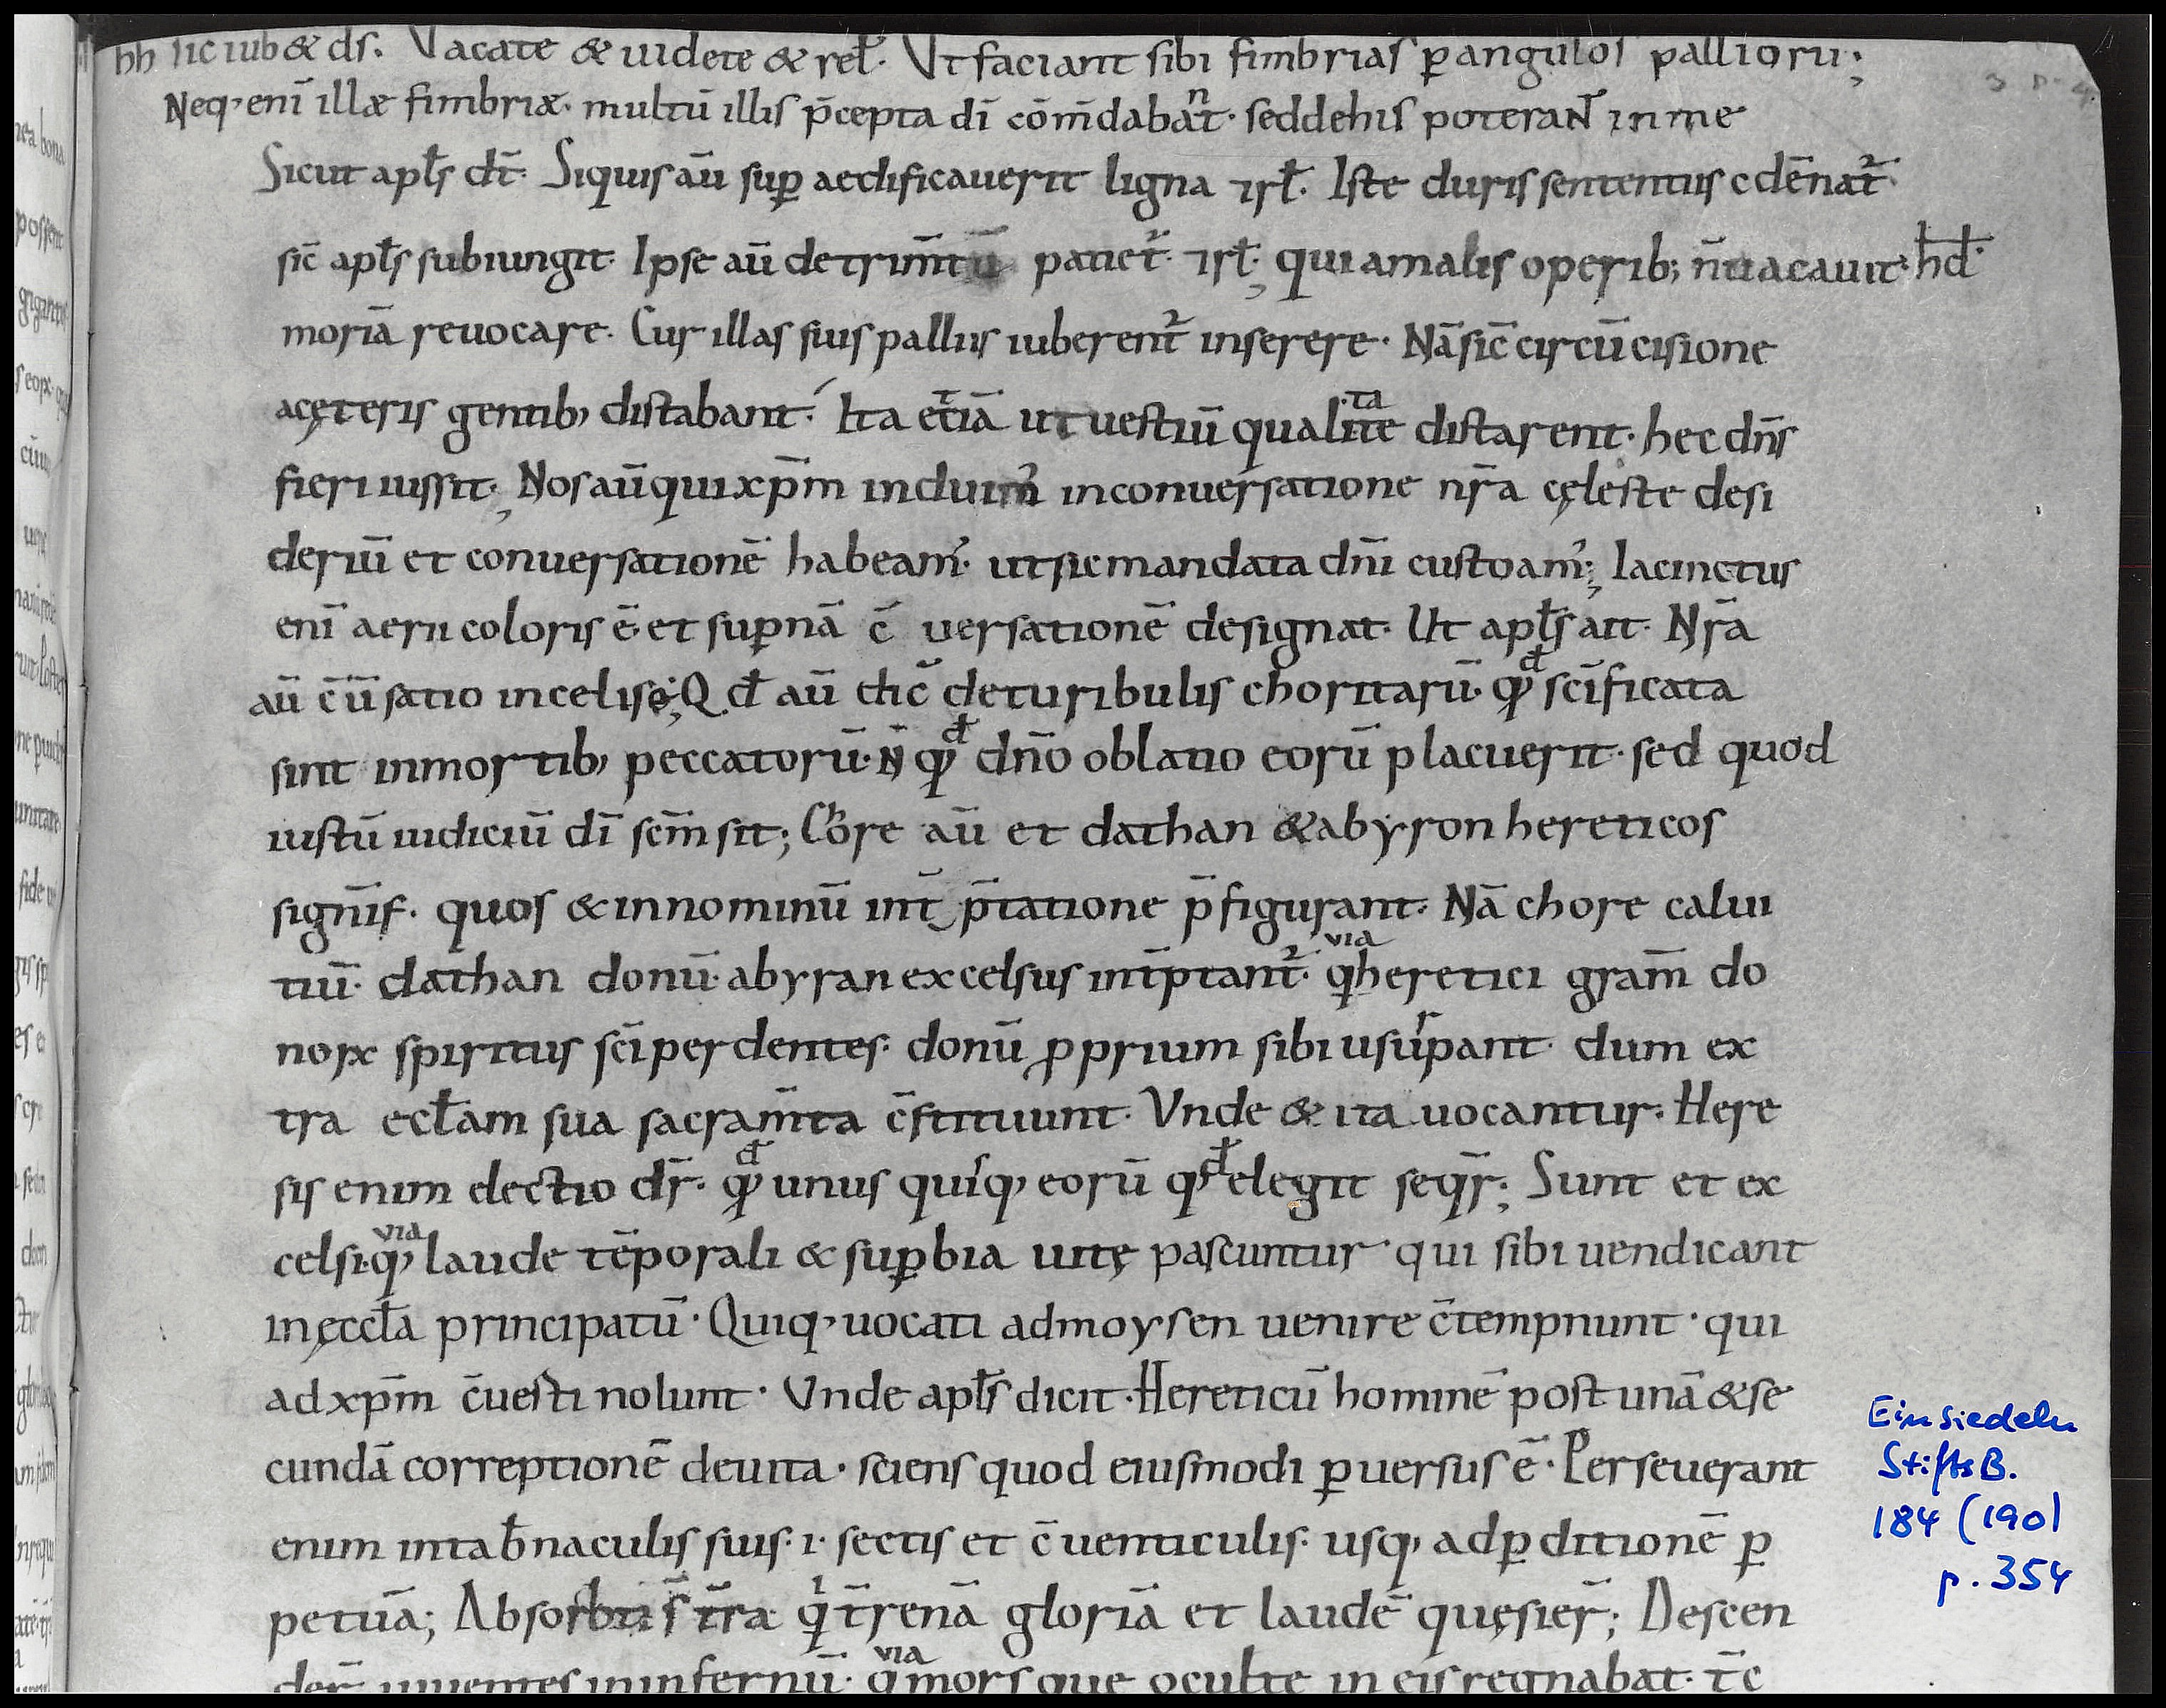 hh sic iub& ds̄. Vacate & uidete & rel̄. Vt faciant sibi fimbrias ꝑ angulos palliorū;
Neq; enī illæ fimbriæ. multū illis p̄cepta dī cōm̄dabant. sed de his poteraN̄ in me
Sicut apl̄s dt̄. Siquis aū suꝑ aedificauerit ligna ⁊ rl̄. Iste duris sententiis cdēnat̄
sic̄ apl̄s subiungit. Ipse aū detrim̄tū patiet̄. ⁊ rl̄; qui a malis operib; n̄ uacauit. hd̄.
moriā reuocare. Cur illas suis palliis iuberent̄ inserere. Nā sic̄ circūcisione
a cęteris gentib; distabant. Ita etiā ut uestiū qualitatē distarent. hec dn̄s
fieri iussit; Nos aū qui xp̄m induim᾽ in conuersatione nr̄a cęleste desi
deriū et conuersationē habeam᾽. ut sic mandata dn̄i custoam᾽; Iacinctus
enī aerii coloris ē. et suꝑnā c̄ uersationē designat. Ut apl̄s ait. Nr̄a
aū c̄ūsatio in celis ē; Qd̄ aū dic̄ de turibulis choritarū. qd̄ sc̄ificata
sint in mortib; peccatorū. N̄ qd̄ dn̄o oblatio eorū placuerit. sed quod
iustū iudiciū dī scm̄ sit; Core aū et dathan & abyron hereticos
signīf. quos & in nominū int̄ p̄tatione p̄figurant. Nā chore calui
tiū. dathan donū. abyran excelsus int̄ptant̄. quia heretici gram̄ do
noꝝ spiritus sc̄i perdentes. donū ꝓprium sibi usurpant. dum ex
tra eccl̄am sua sacram̄ta c̄stituunt. Vnde & ita uocantur. Here
sis enim electio dr̄. qd̄ unus quisq; eorū qd̄ elegit seqr̄; Sunt et ex
celsi. quia laude tēporali & suꝑbia uitę pascuntur. qui sibi uendicant
in ęccl̄a principatū. Quiq; uocati ad moysen uenire c̄tempnunt. qui
ad xp̄m c̄uerti nolunt. Vnde apl̄s dicit. Hereticū hominē post unā & se
cundā correptionē deuita. sciens quod eiusmodi ꝑuersus ē. Perseuerant
enim in tab̄naculis suis. i. sectis et c̄uenticulis. usq; ad ꝑditionē ꝑ
petuā; Absorbti s̄ t̄ra q̄ t̄renā gloriā et laudē quęsier̄; Descen
der̄ uiuentes in infernū. quia mors que occulte in eis regnabat. t̄c
Einsiedeln
StiftsB.
184 (190)
p. 354